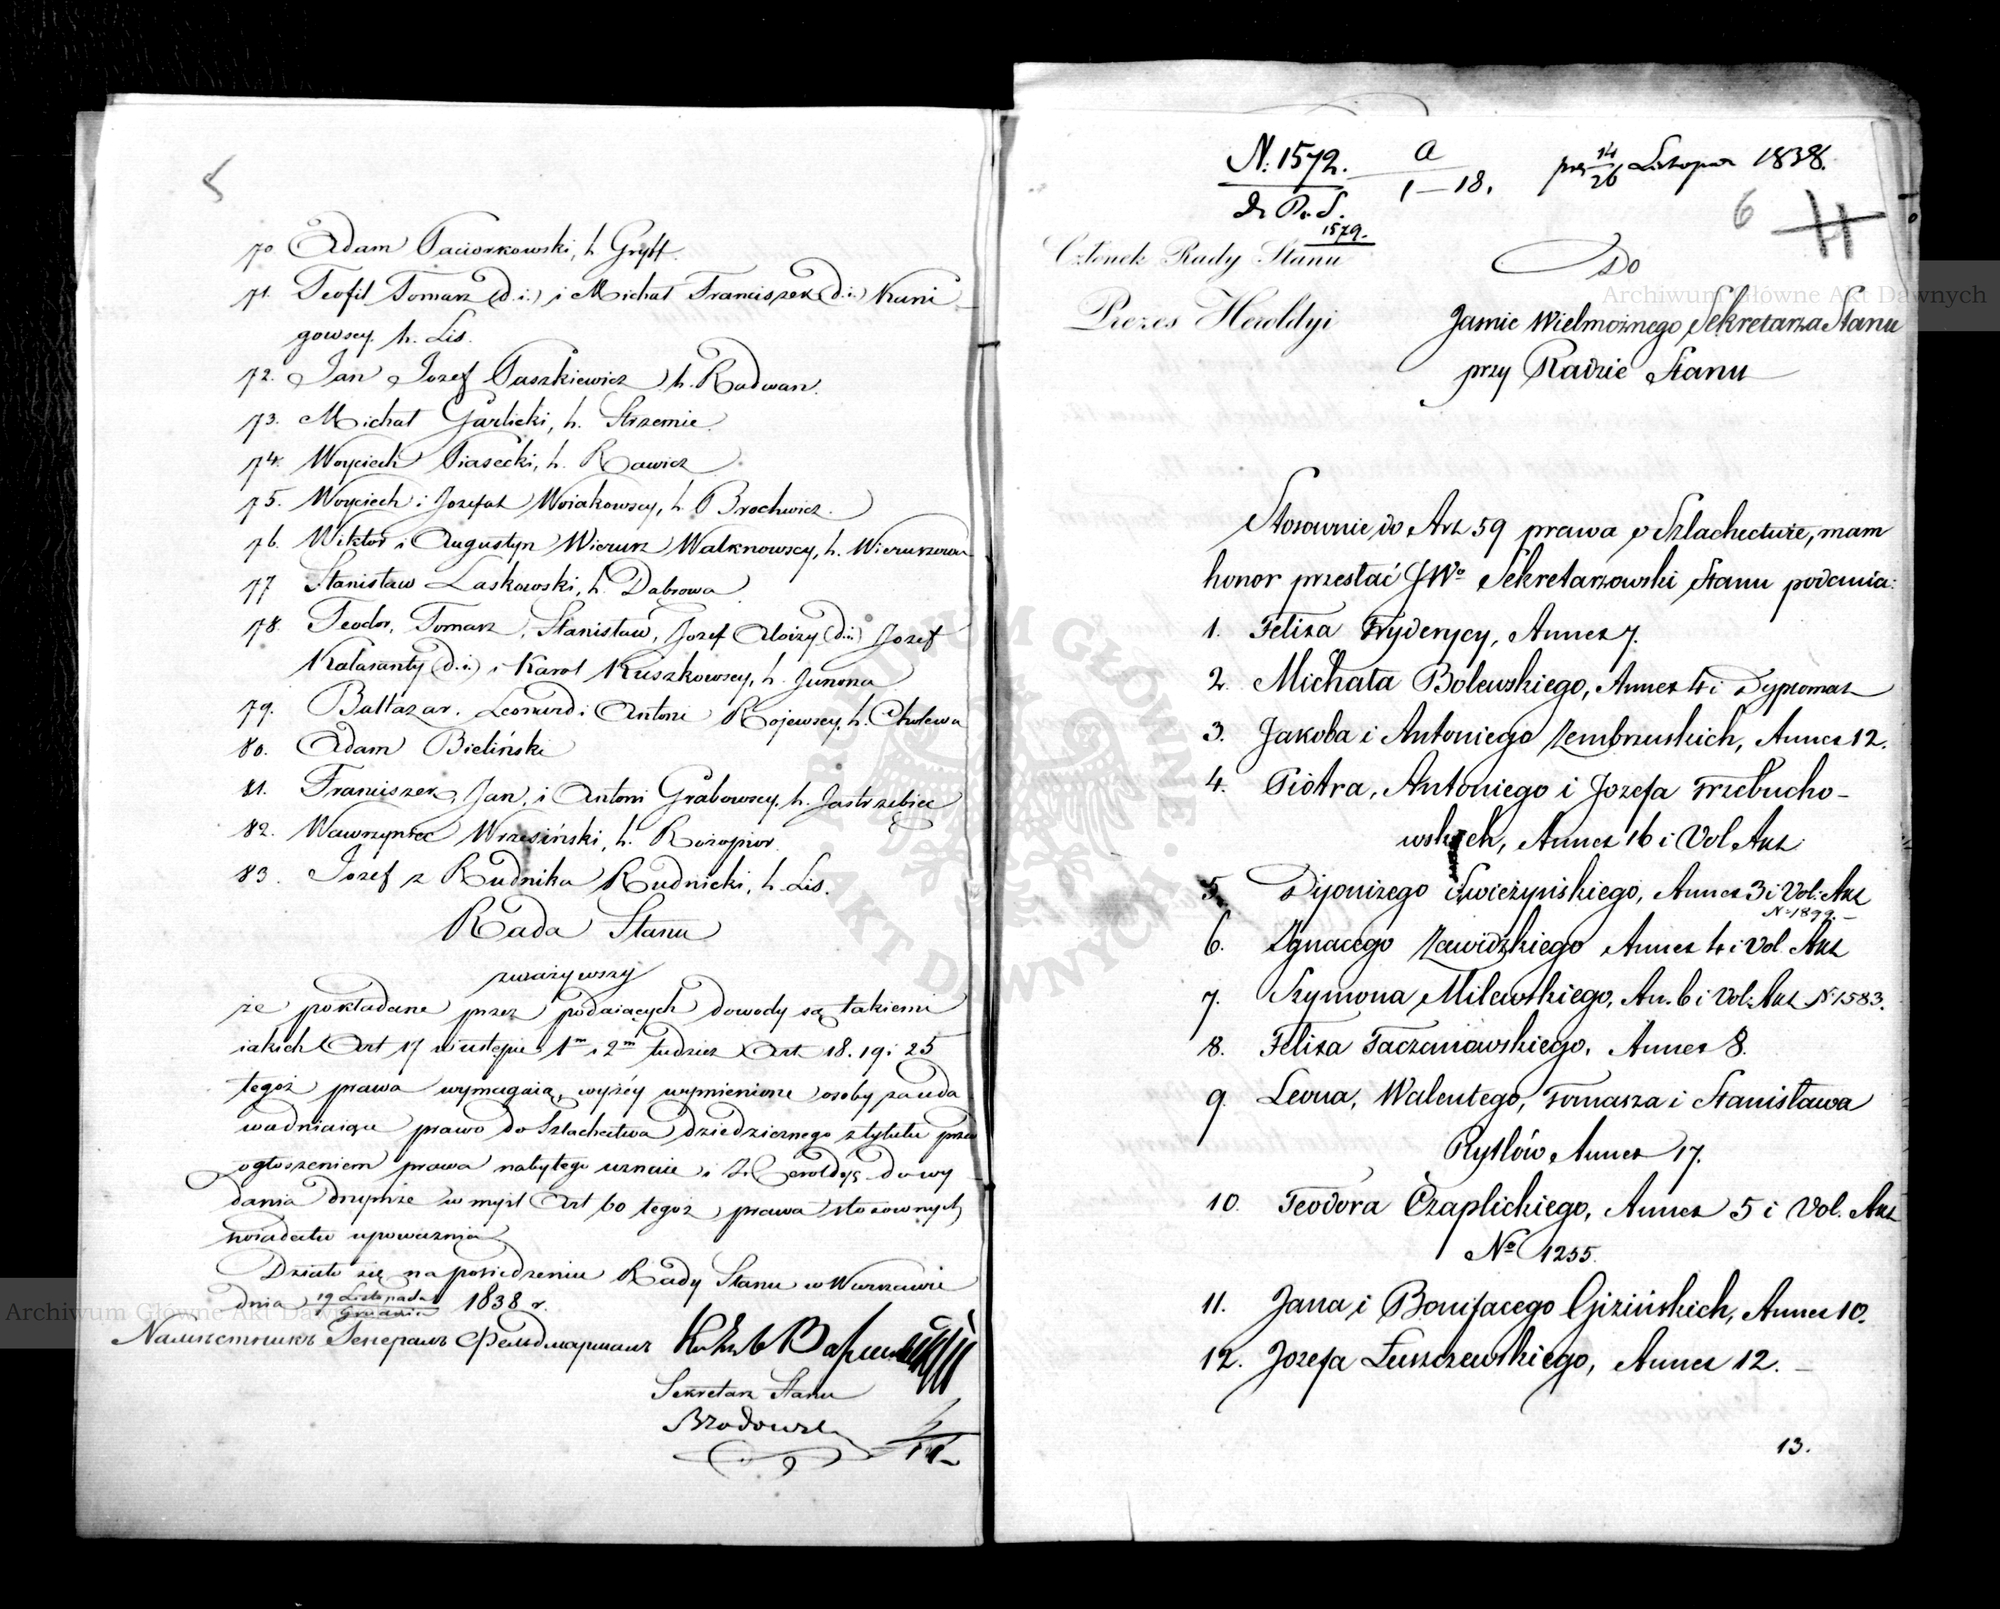 70 Adam Paciorkowski, h. Gryff.
71. Teofil Tomasz (d. i.) i Michał Franciszek (d. i.) Kuni
gowscy. h. Lis.
72. Jan Jozef Paszkiewicz h. Radwan.
73. Michał Garlicki, h. Strzemie.
74. Woyciech Piasecki, h. Rawicz
75. Woyciech i Jozefat Woiakowscy, h. Brochwicz.
76. Wiktor i Augustyn Wierusz Walknowscy, h. Wieruszowa
77 Stanisław Laskowski, h. Dąbrowa
78. Teodor, Tomasz, Stanisław, Jozef Aloizy (d. i.) Jozef
Kalasanty (d. i.) i Karol Kuszkowscy, h. Junosza
79. Baltazar, Leonard i Antoni Rojewscy, h. Cholewa
80. Adam Bieliński
81. Franciszek, Jan, i Antoni Grabowscy, h. Jastrzębiec
82. Wawrzyniec Wrzesiński, h. Rozopior.
83. Jozef z Rudnika Rudnicki, h. Lis.
Rada Stanu
zważywszy
że pokładane przez podaiących dowody są takiemi
iakich Art 17 w ustępie 1m i 2m tudzież Art 18. 19 i 25
tegoż prawa wymagaią, wyżéy wymienione osoby za uda
wadniaiące prawo do Szlachectwa dziedzicznego z tytułu przed
ogłoszeniem prawa nabytego uznaie i Heroldyę do wy
dania onymże w myśl Art 60 tegoż prawa stosownych
świadectw upoważnia
Działo się na posiedzeniu Rady Stanu w Warszawie
dnia 19 Listopada / Grudnia 1838 r.
Намѣстникъ Генералъ Фельдмаршалъ
Sekretarz Stanu
Brzodowski
N. 1572.
a
1–18.
14/26 Listopa 1838.
D. R. S.
1579.
6
Członek Rady Stanu
Prezes Heroldyi
Do
Jaśnie Wielmożnego Sekretarza Stanu
przy Radzie Stanu
Stosownie do Art 59 prawa o Szlachectwie, mam
honor przesłać JWo Sekretarzowski Stanu podania:
1. Felixa Fryderycy, Annex 7.
2. Michała Bolewskiego, Annex 4 i Dyplomat
3. Jakoba i Antoniego Zembrzuskich, Annex 12.
4. Piotra, Antoniego i Jozefa Trzebucho-
wskich, Annex 16 i Vol. Akt.
5. Dijonizego Świeżyńskiego, Annex 3 i Vol: Akt
N: 1899.
6. Ignacego Zawidzkiego Annex 4 i Vol. Akt
7. Szymona Milewskiego, An. 6 i Vol: Akt N: 1583.
8. Felixa Taczanowskiego, Annex 8.
9. Leona, Walentego, Tomasza i Stanisława
Rytlów Annex 17.
10. Teodora Czaplickiego, Annex 5 i Vol. Akt
No 1255.
11. Jana i Bonifacego Gizińskich, Annex 10.
12. Jozefa Łuszczewskiego, Annex 12.
13.
Archiwum Główne Akt Dawnych
Archiwum Główne Akt Dawnych
ARCHIWUM GŁÓWNE AKT DAWNYCH